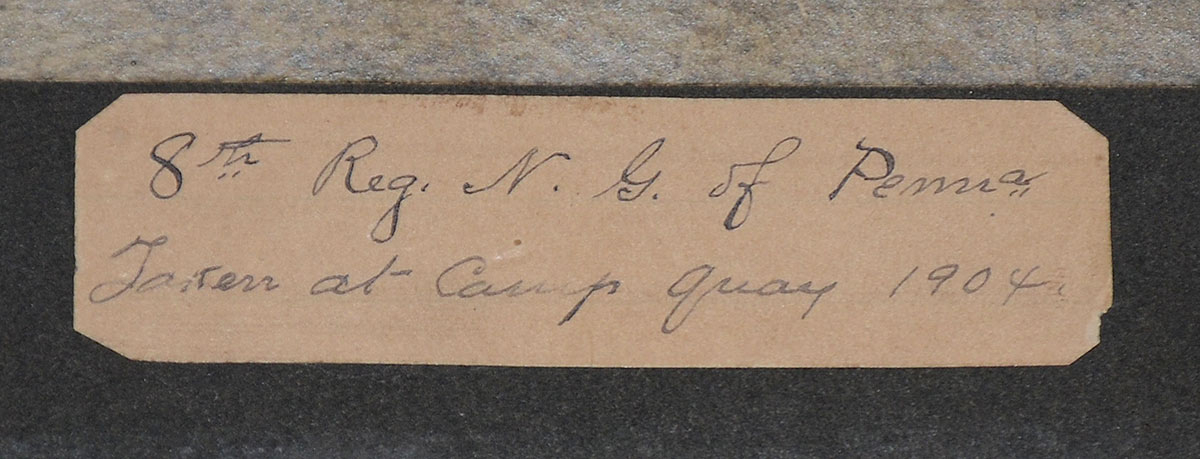 8th Reg. N. G. of Penna
Taken at Camp Quay 1904.